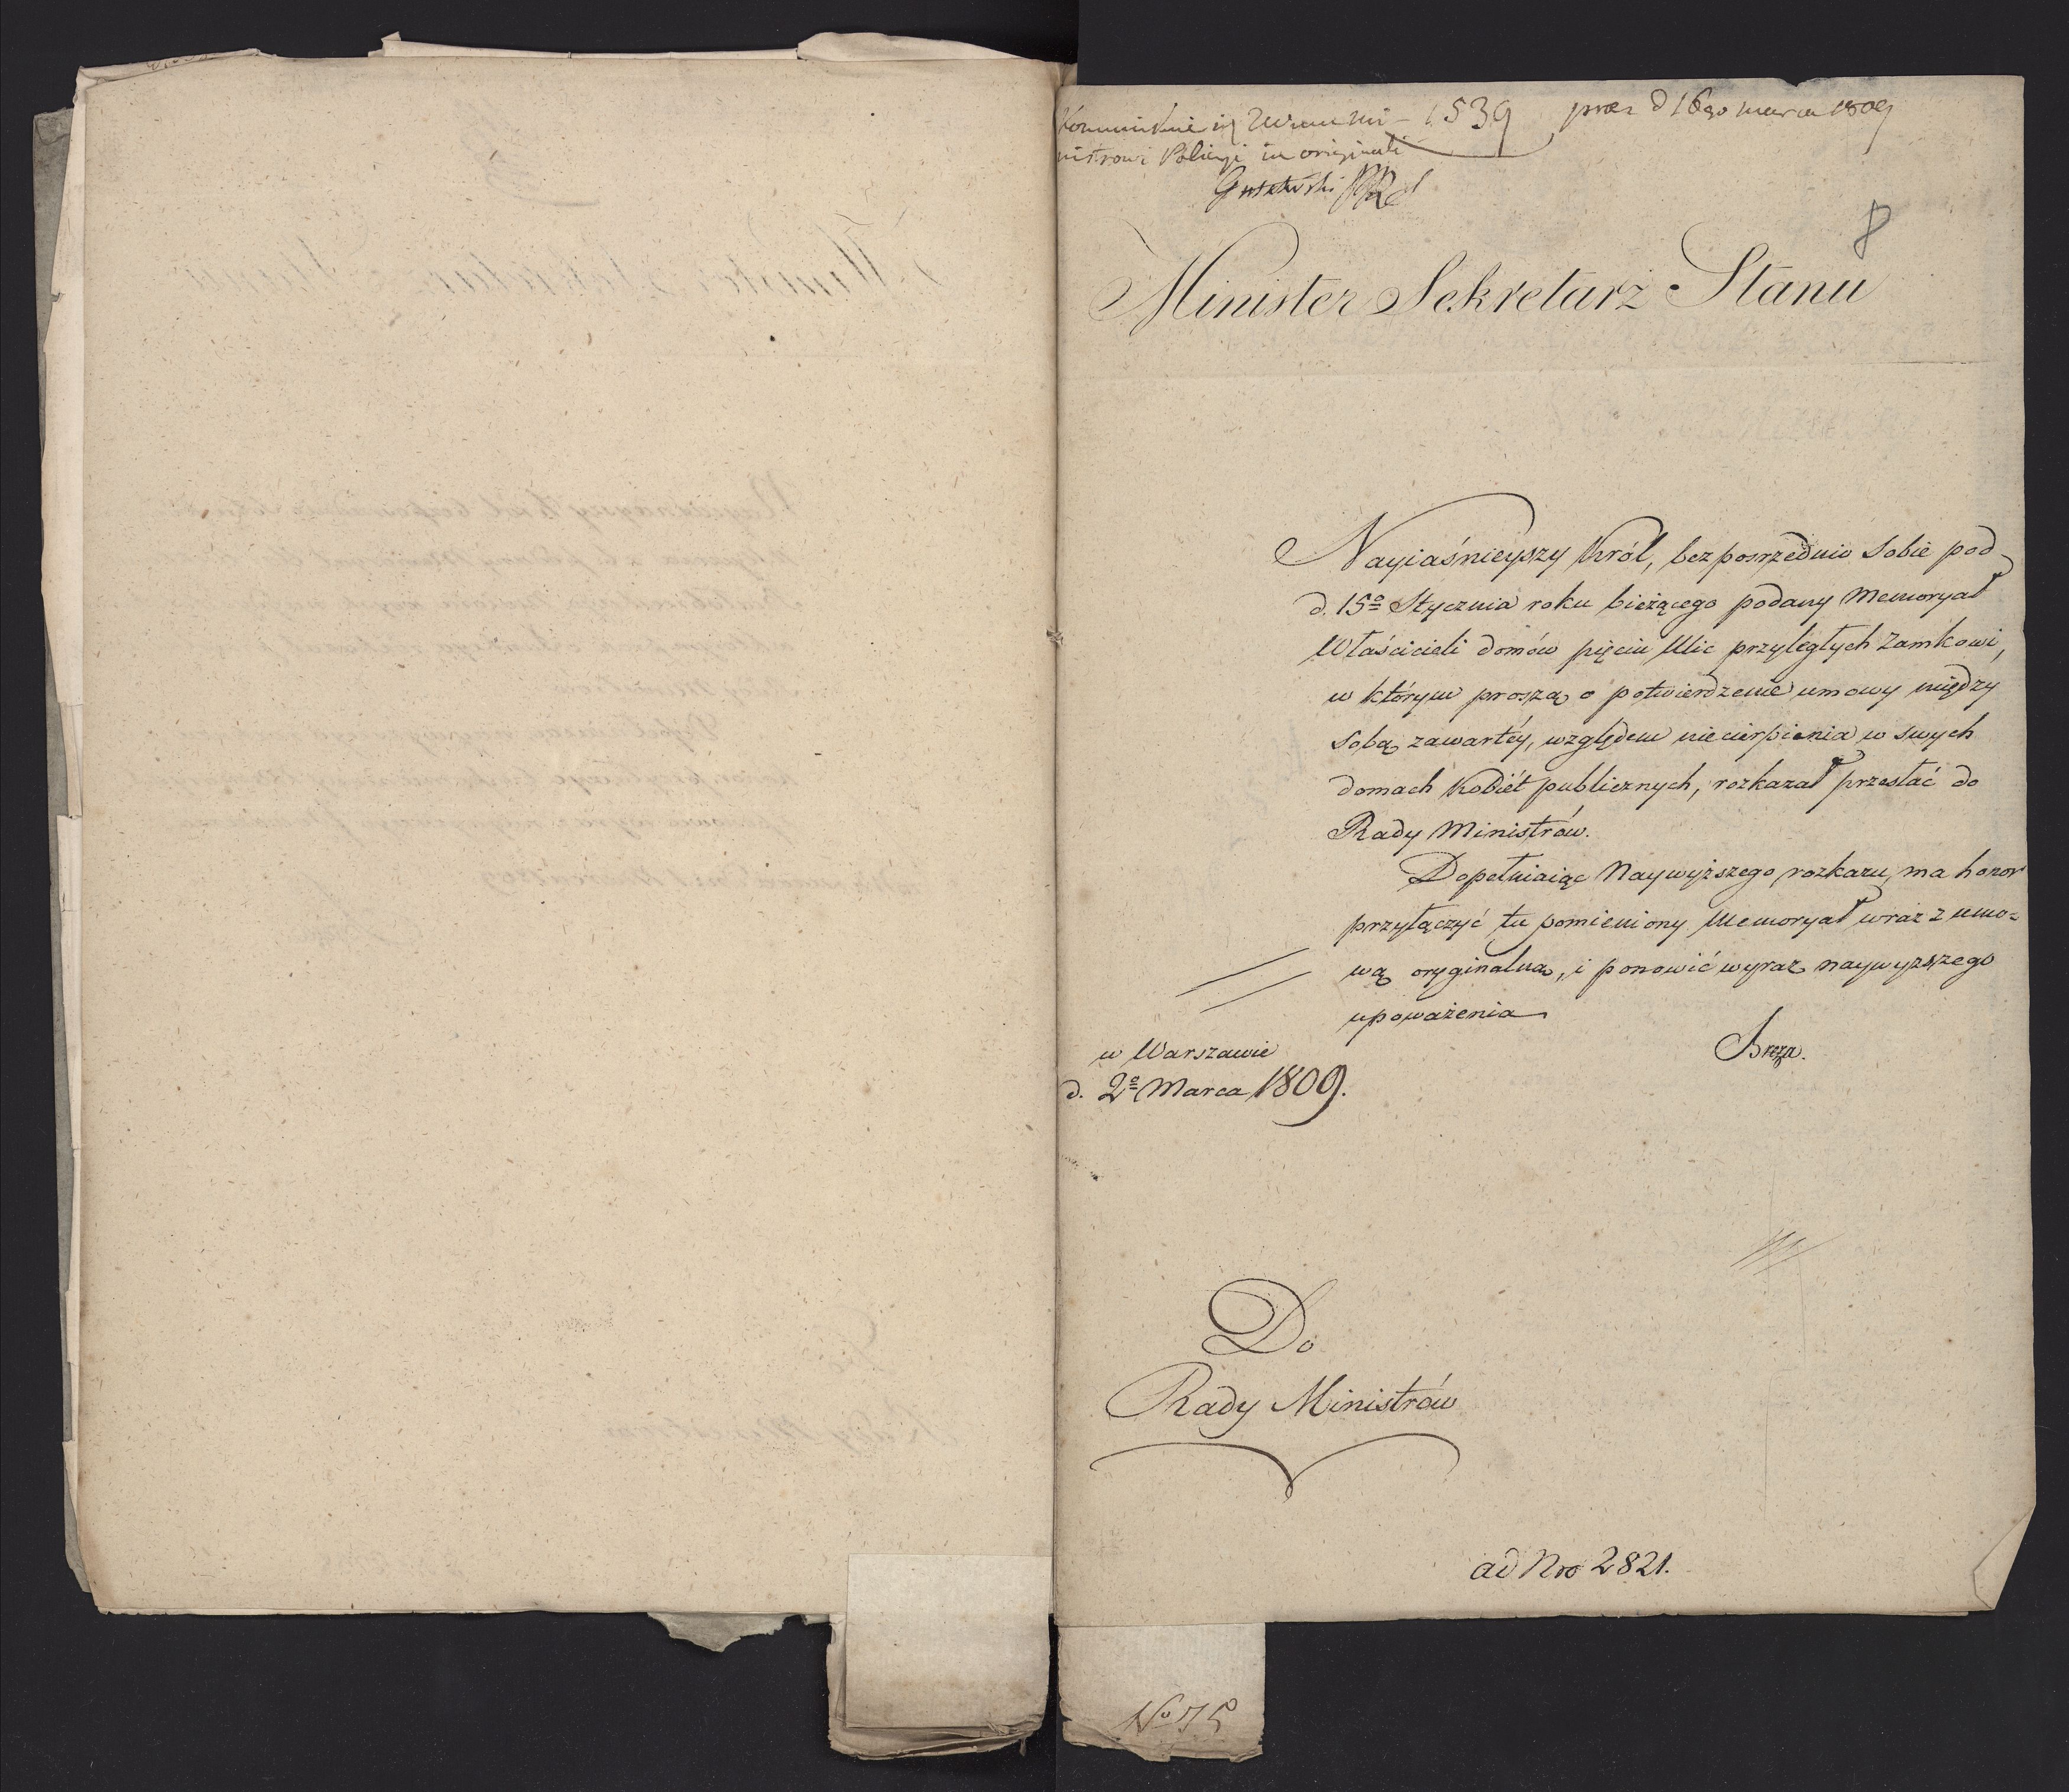 1539 prez d 16go marca 1809
nistrowi Policyi in originali
8
Minister Sekretarz Stanu
Nayiaśnieyszy Król, bezposrzednio Sobie pod
d. 15º Stycznia roku bieżącego podany Memoryał
Właścicieli domów pięciu Ulic przyległych Zamkowi,
w którym proszą o potwierdzenie umowy między
Sobą zawartéy, względem niecierpienia w swych
domach Kobiét publicznych, rozkazał przesłać do
Rady Ministrów.
Dopełniaiąc Naywyższego rozkazu, ma honor
przyłączyć tu pomieniony Memoryał wraz z umo=
wą oryginalną, i ponowić wyraz naywyższego
upoważenia
Breza.
w Warszawie
d. 2º Marca 1809.
Do
Rady Ministrów
ad Nro 2821.
No 75